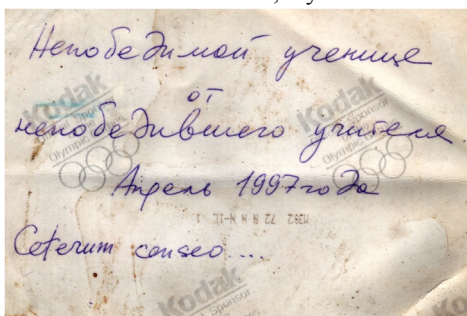 Непобедимой ученице
от
непобедившего учителя
Апрель 1997 года
Ceterum censeo ...
Kodak
Olympic Sponsor
Kodak
Olympic Sponsor
Kodak
Sponsor